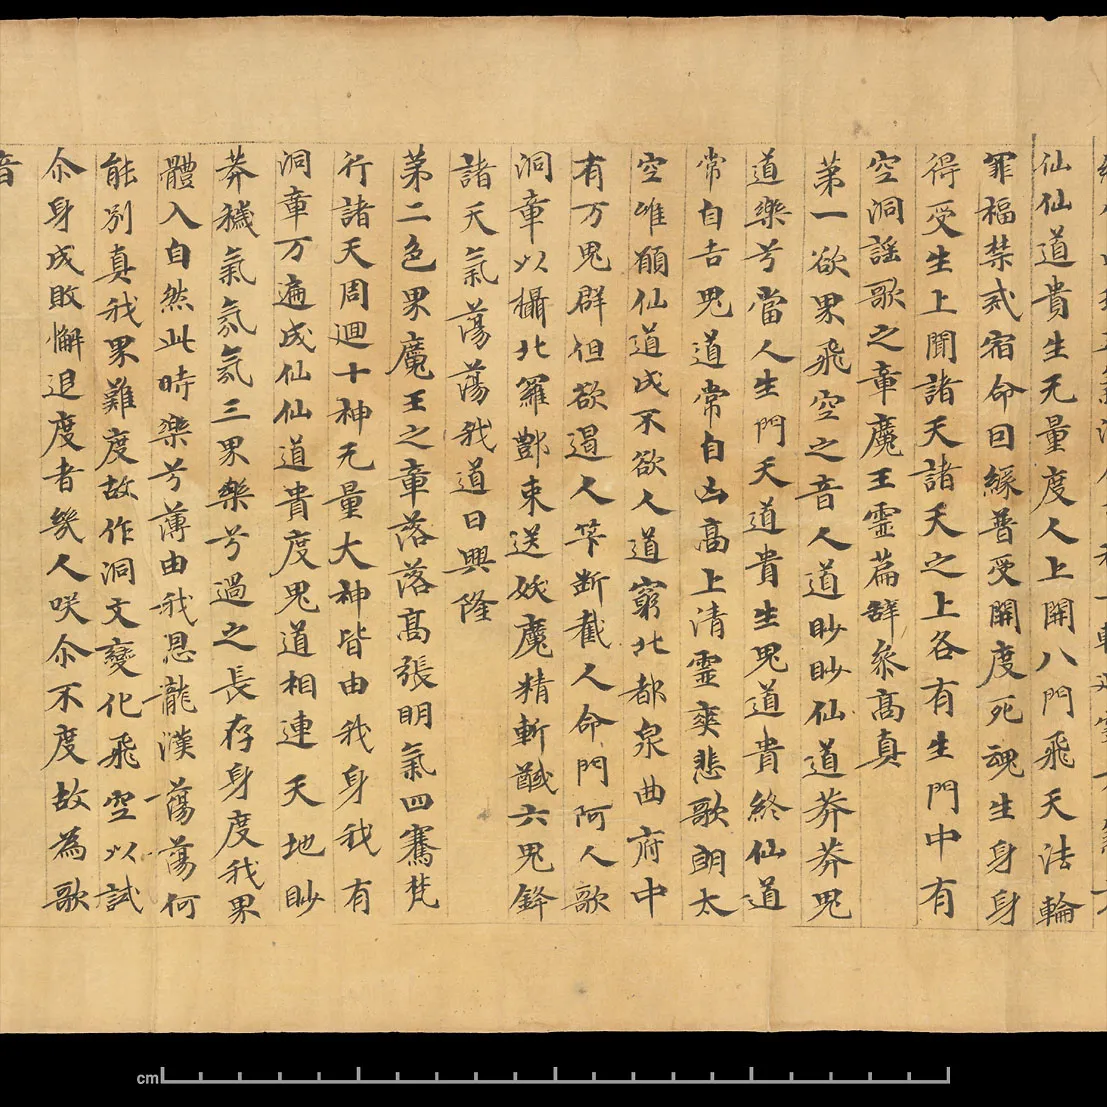 仙仙道貴生无量度人上開八門飛天法輪
罪福禁戒宿命因緣普受開度死魂生身身
得受生上聞諸天諸天之上各有生門中有
空洞謡歌之章魔王靈篇辞参髙真
第一欲界飛空之音人道眇眇仙道莽莽鬼
道樂兮當人生門天道貴生鬼道貴終仙道
常自吉鬼道常自凶髙上清靈爽悲歌朗太
空唯願仙道成不欲人道窮北都泉曲府中
有万鬼群但欲遏人筭断截人命門阿人歌
洞章以攝北羅酆束送妖魔精斬馘六鬼鋒
諸天氣蕩蕩我道日興隆
第二色界魔王之章落落髙張明氣四騫梵
行諸天周迴十神无量大神皆由我身我有
洞章万遍成仙仙道貴度鬼道相連天地眇
莽穢氣氛氛三界樂兮過之長存身度我界
體入自然此時樂兮薄由我恩龍漢蕩蕩何
能別真我界難度故作洞文變化飛空以試
尒身成敗懈退度者幾人咲尒不度故為歌
音
cm